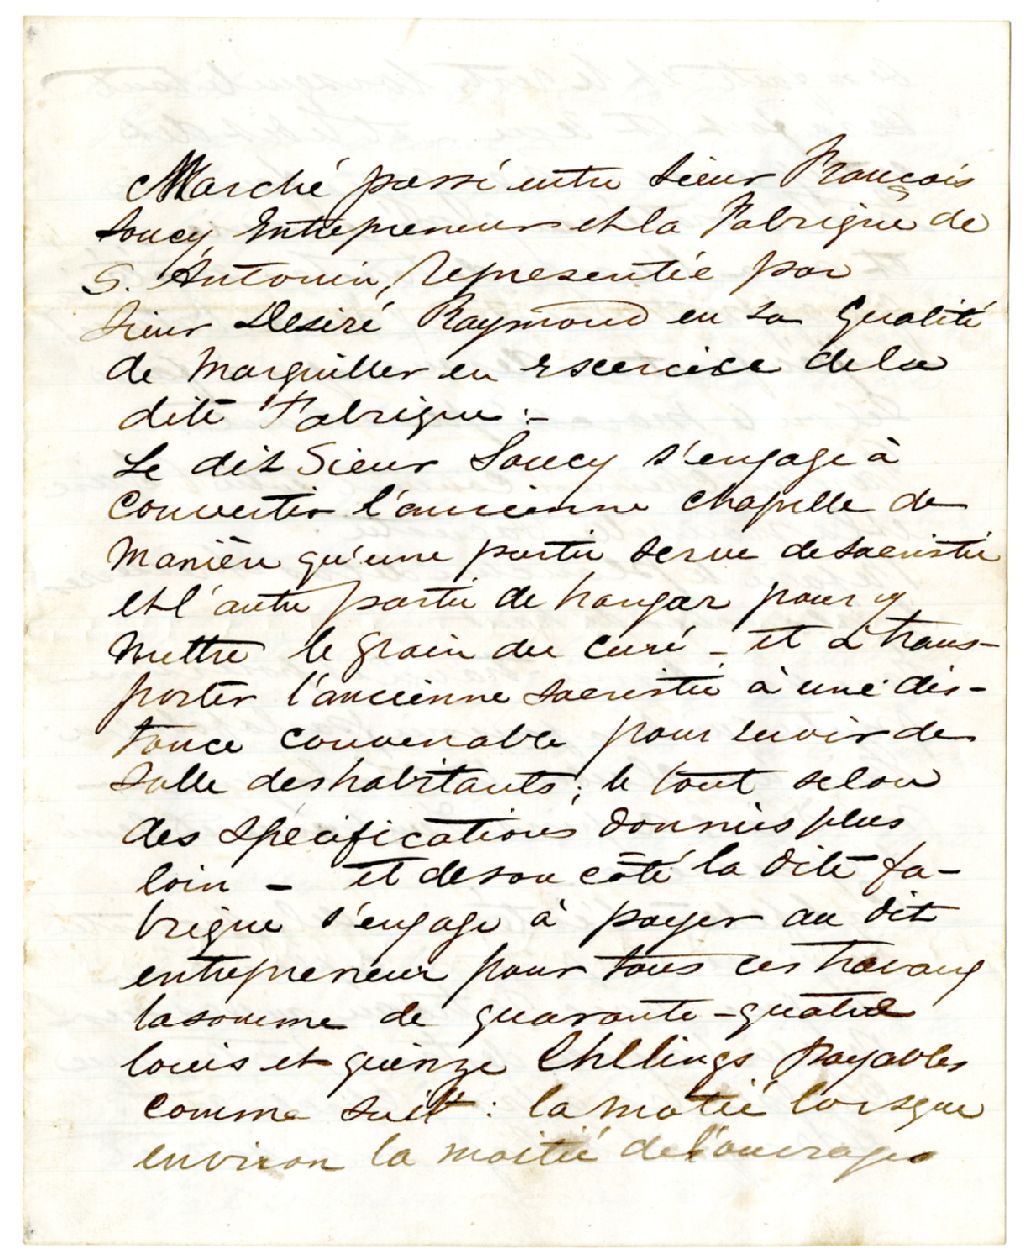 Marché passé entre Sieur François
Soucy Entrepreneur et la Fabrique de
S. Antonin, representée par
Sieur Desiré Raymond en sa qualité
de Marguiller en exercice de la
dite Fabrique :-
Le dit Sieur Soucy s'engage à
convertir l'ancienne chapelle de
Manière qu'une partie serve de sacristie
et l'autre partie de hangar pour y
Mettre le grain du curé - et à trans-
porter l'ancienne sacristie à une dis-
tance convenable pour servir de
Salle des habitants; le tout selon
des spécifications données plus
loin - et de son côté la dite fa-
brique s'engage à payer au dit
entrepreneur pour tous ces travaux
la somme de quarante-quatre
louis et quinze Chllings Payables
comme suit : la motié lorsque
environ la moitié de l'ouvrage